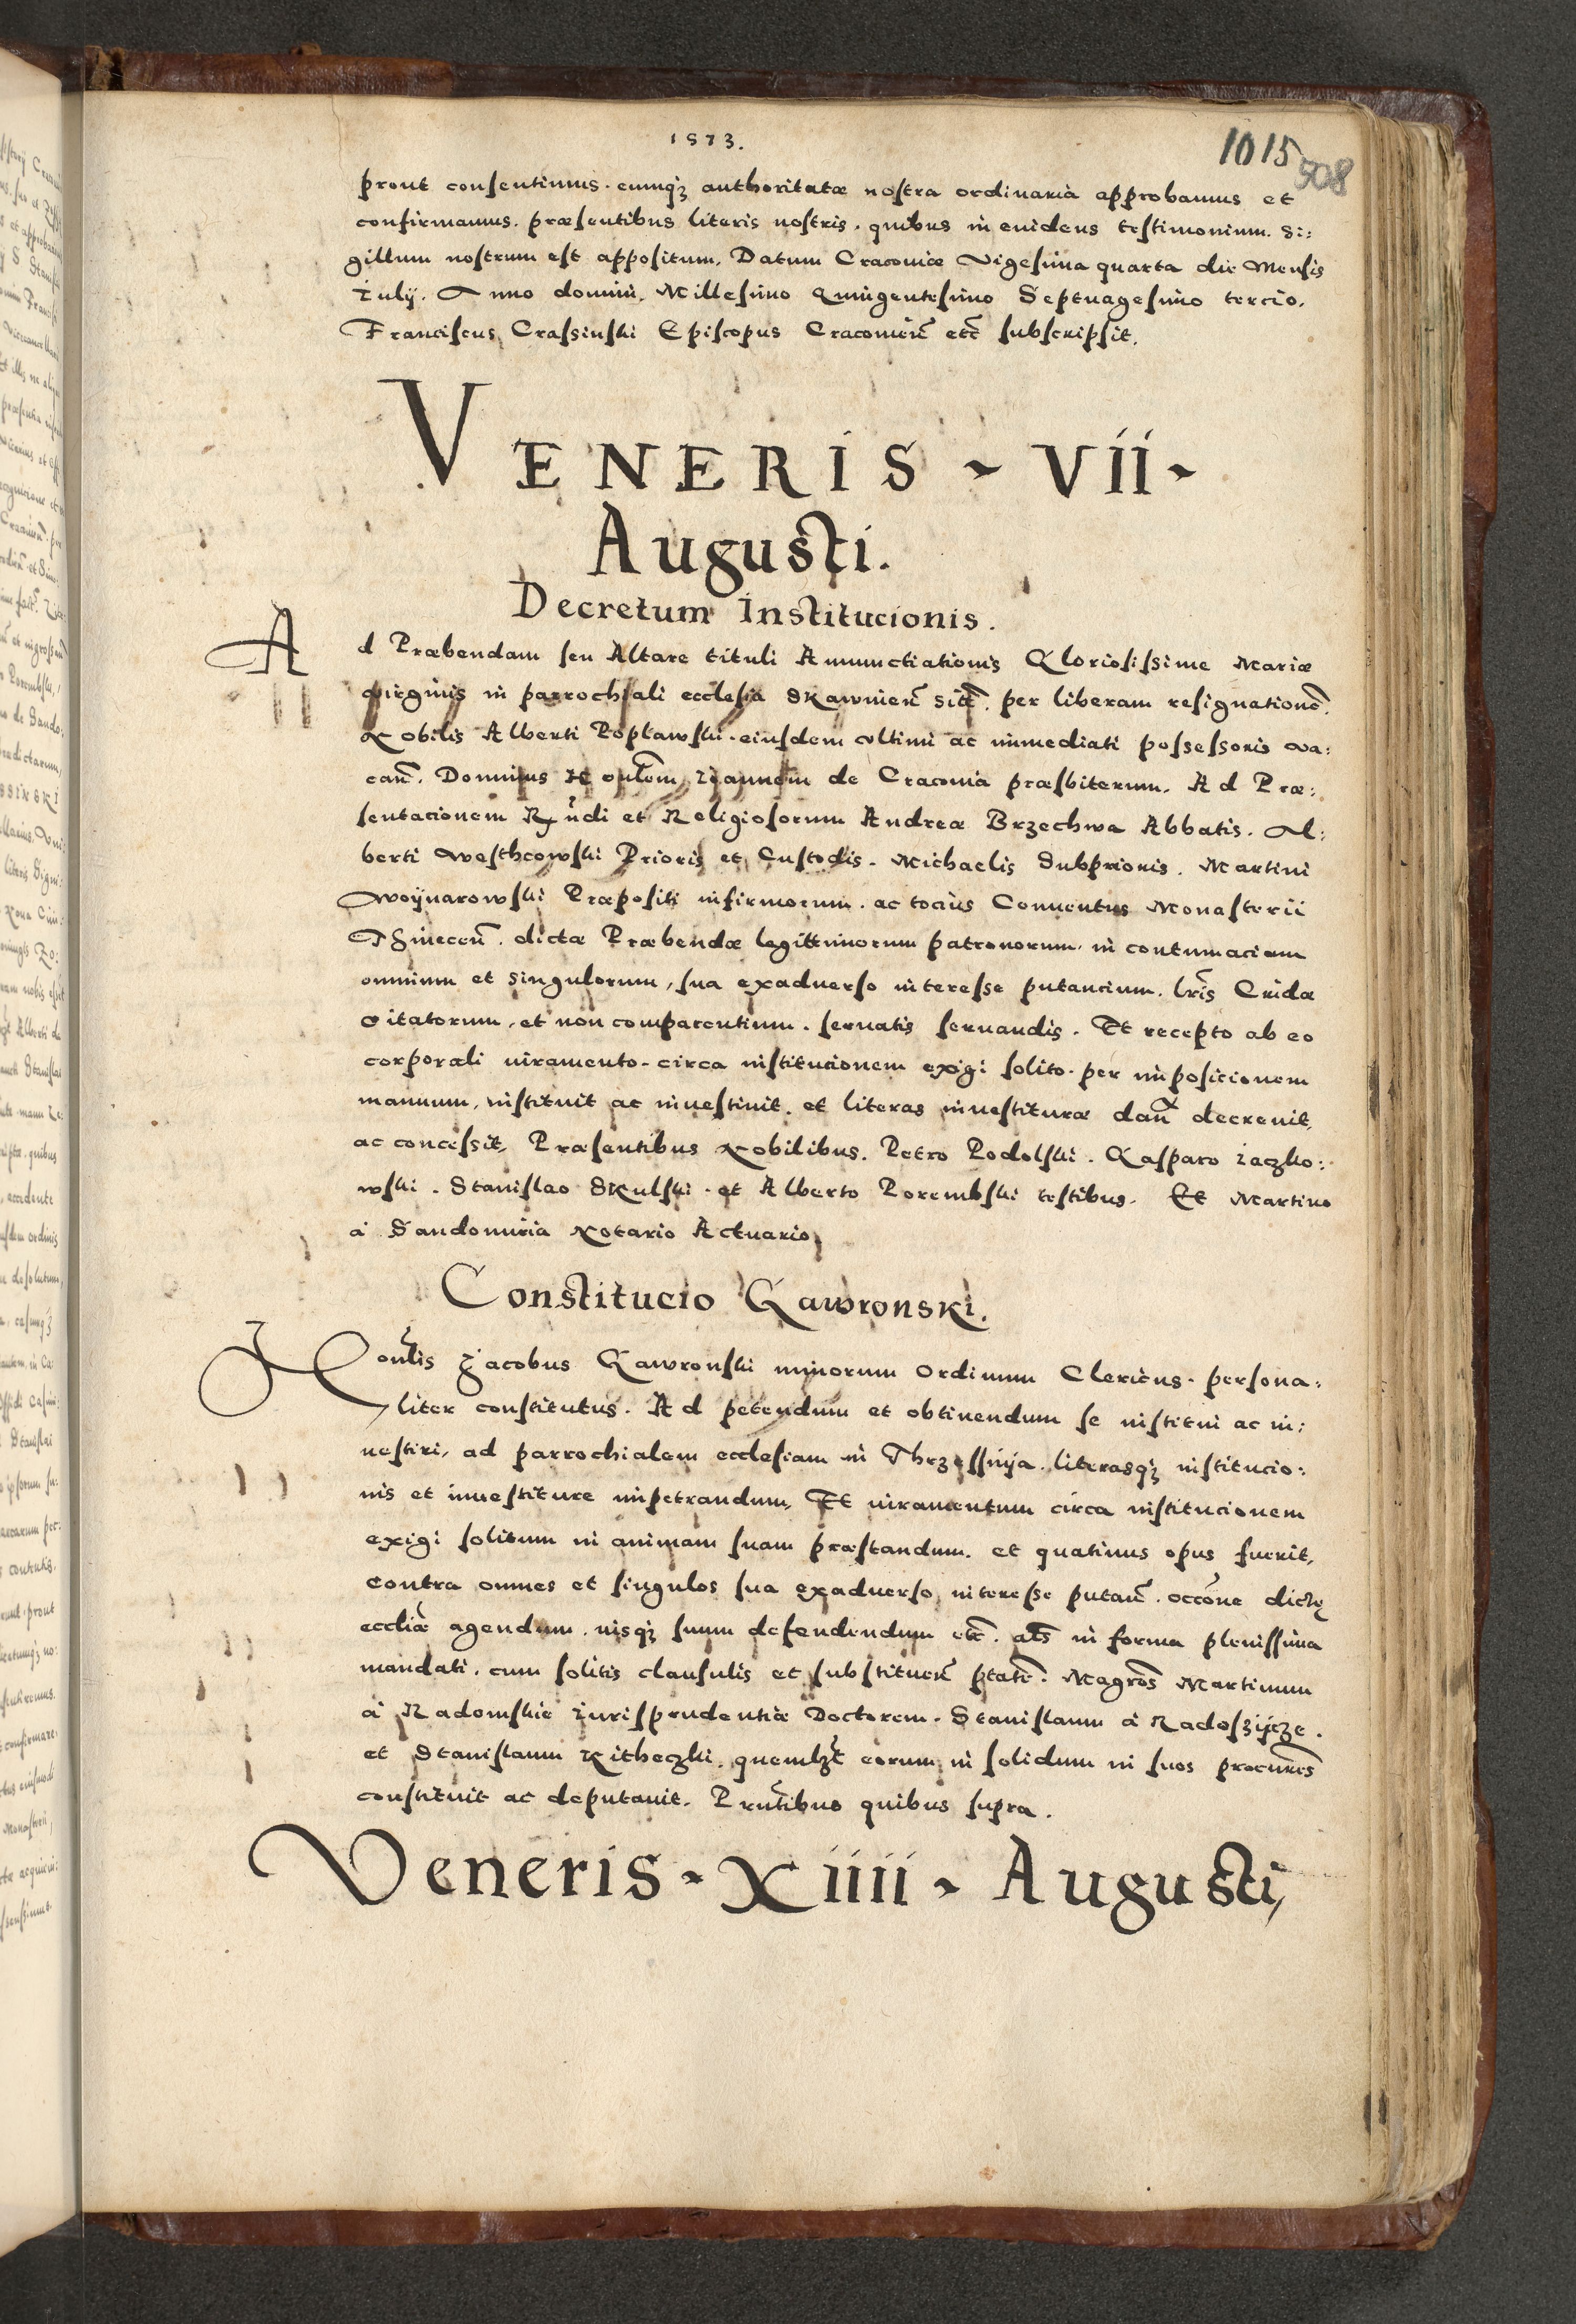 1573.
1015
508
prout consentimus. eumqꝫ authoritatæ nostra ordinaria approbamus et
confirmamus. præsentibus literis nostris. quibus in euidens testimonium. Si:
gillum nostrum est appositum. Datum Cracouiæ Vigesima quarta die Mensis
Iulij. Anno domini. Millesimo Quingentesimo Septuagesimo tercio.
Franciscus Crassinski Episcopus Cracouień etc̃ subscripsit.
VENERIS - VII -
Augusti.
Decretum Institucionis.
Ad Præbendam seu Altare tituli Annunctiationis Gloriosissime Mariæ
virginis in parrochiali ecclesia Skawinen̄ sitē. per liberam resignationē.
Nobilis Alberti Poplawski. eiusdem vltimi ac immediati possessoris va:
can̄. Dominus Honlem Ioannem de Cracouia præsbiterum. Ad Præ:
sentacionem Rn̄di et Religiosorum Andreæ Brzechwa Abbatis. Al:
berti Westhcowski Prioris et Custodis. Michaelis Subprioris. Martini
Woynarowski Præpositi infirmorum. ac tocius Conuentus Monasterii
Thinecen̄. dictæ Præbendæ legittimorum patronorum. in contumaciam
omnium et singulorum, sua exaduerso interesse putancium. lr̄is Cridæ
citatorum, et non comparentium. seruatis seruandis. Et recepto ab eo
corporali iuramento. circa institucionem exigi solito. per imposicionem
manuum, instituit ac inuestiuit. et literas inuestituræ dan̄ decreuit,
ac concessit, Præsentibus Nobilibus. Petro Podolski. Gasparo Iaczko:
wski. Stanislao Skulski. et Alberto Porembski testibus. Et Martino
à Sandomiria Notario Actuario.
Constitucio Gawronski.
Honlis Jacobus Gawronski minorum Ordinum Clericus. persona:
liter constitutus. Ad petendum et obtinendum se institui ac in:
uestiri, ad parrochialem ecclesiam in Thrzessnya. literasqꝫ institucio:
nis et inuestiture impetrandum. Et iuramentum circa institucionem
exigi solitum in animam suam præstandum. et quatinus opus fuerit,
contra omnes et singulos sua exaduerso interesse putan̄. occōne dictę
eccliæ agendum. iusqꝫ suum defendendum etc̄. als̄ in forma plenissima
mandati. cum solitis clausulis et substituen̄ ptatē. Magrōs Martinum
à Radomskie Iurisprudentiæ Doctorem. Stanislaum à Radoszijcze.
et Stanislaum Kitheczki. quemlꝫt eorum in solidum in suos procur̄es
constituit ac deputauit. Prn̄tibus quibus supra.
Veneris - Xiiii - Augusti,